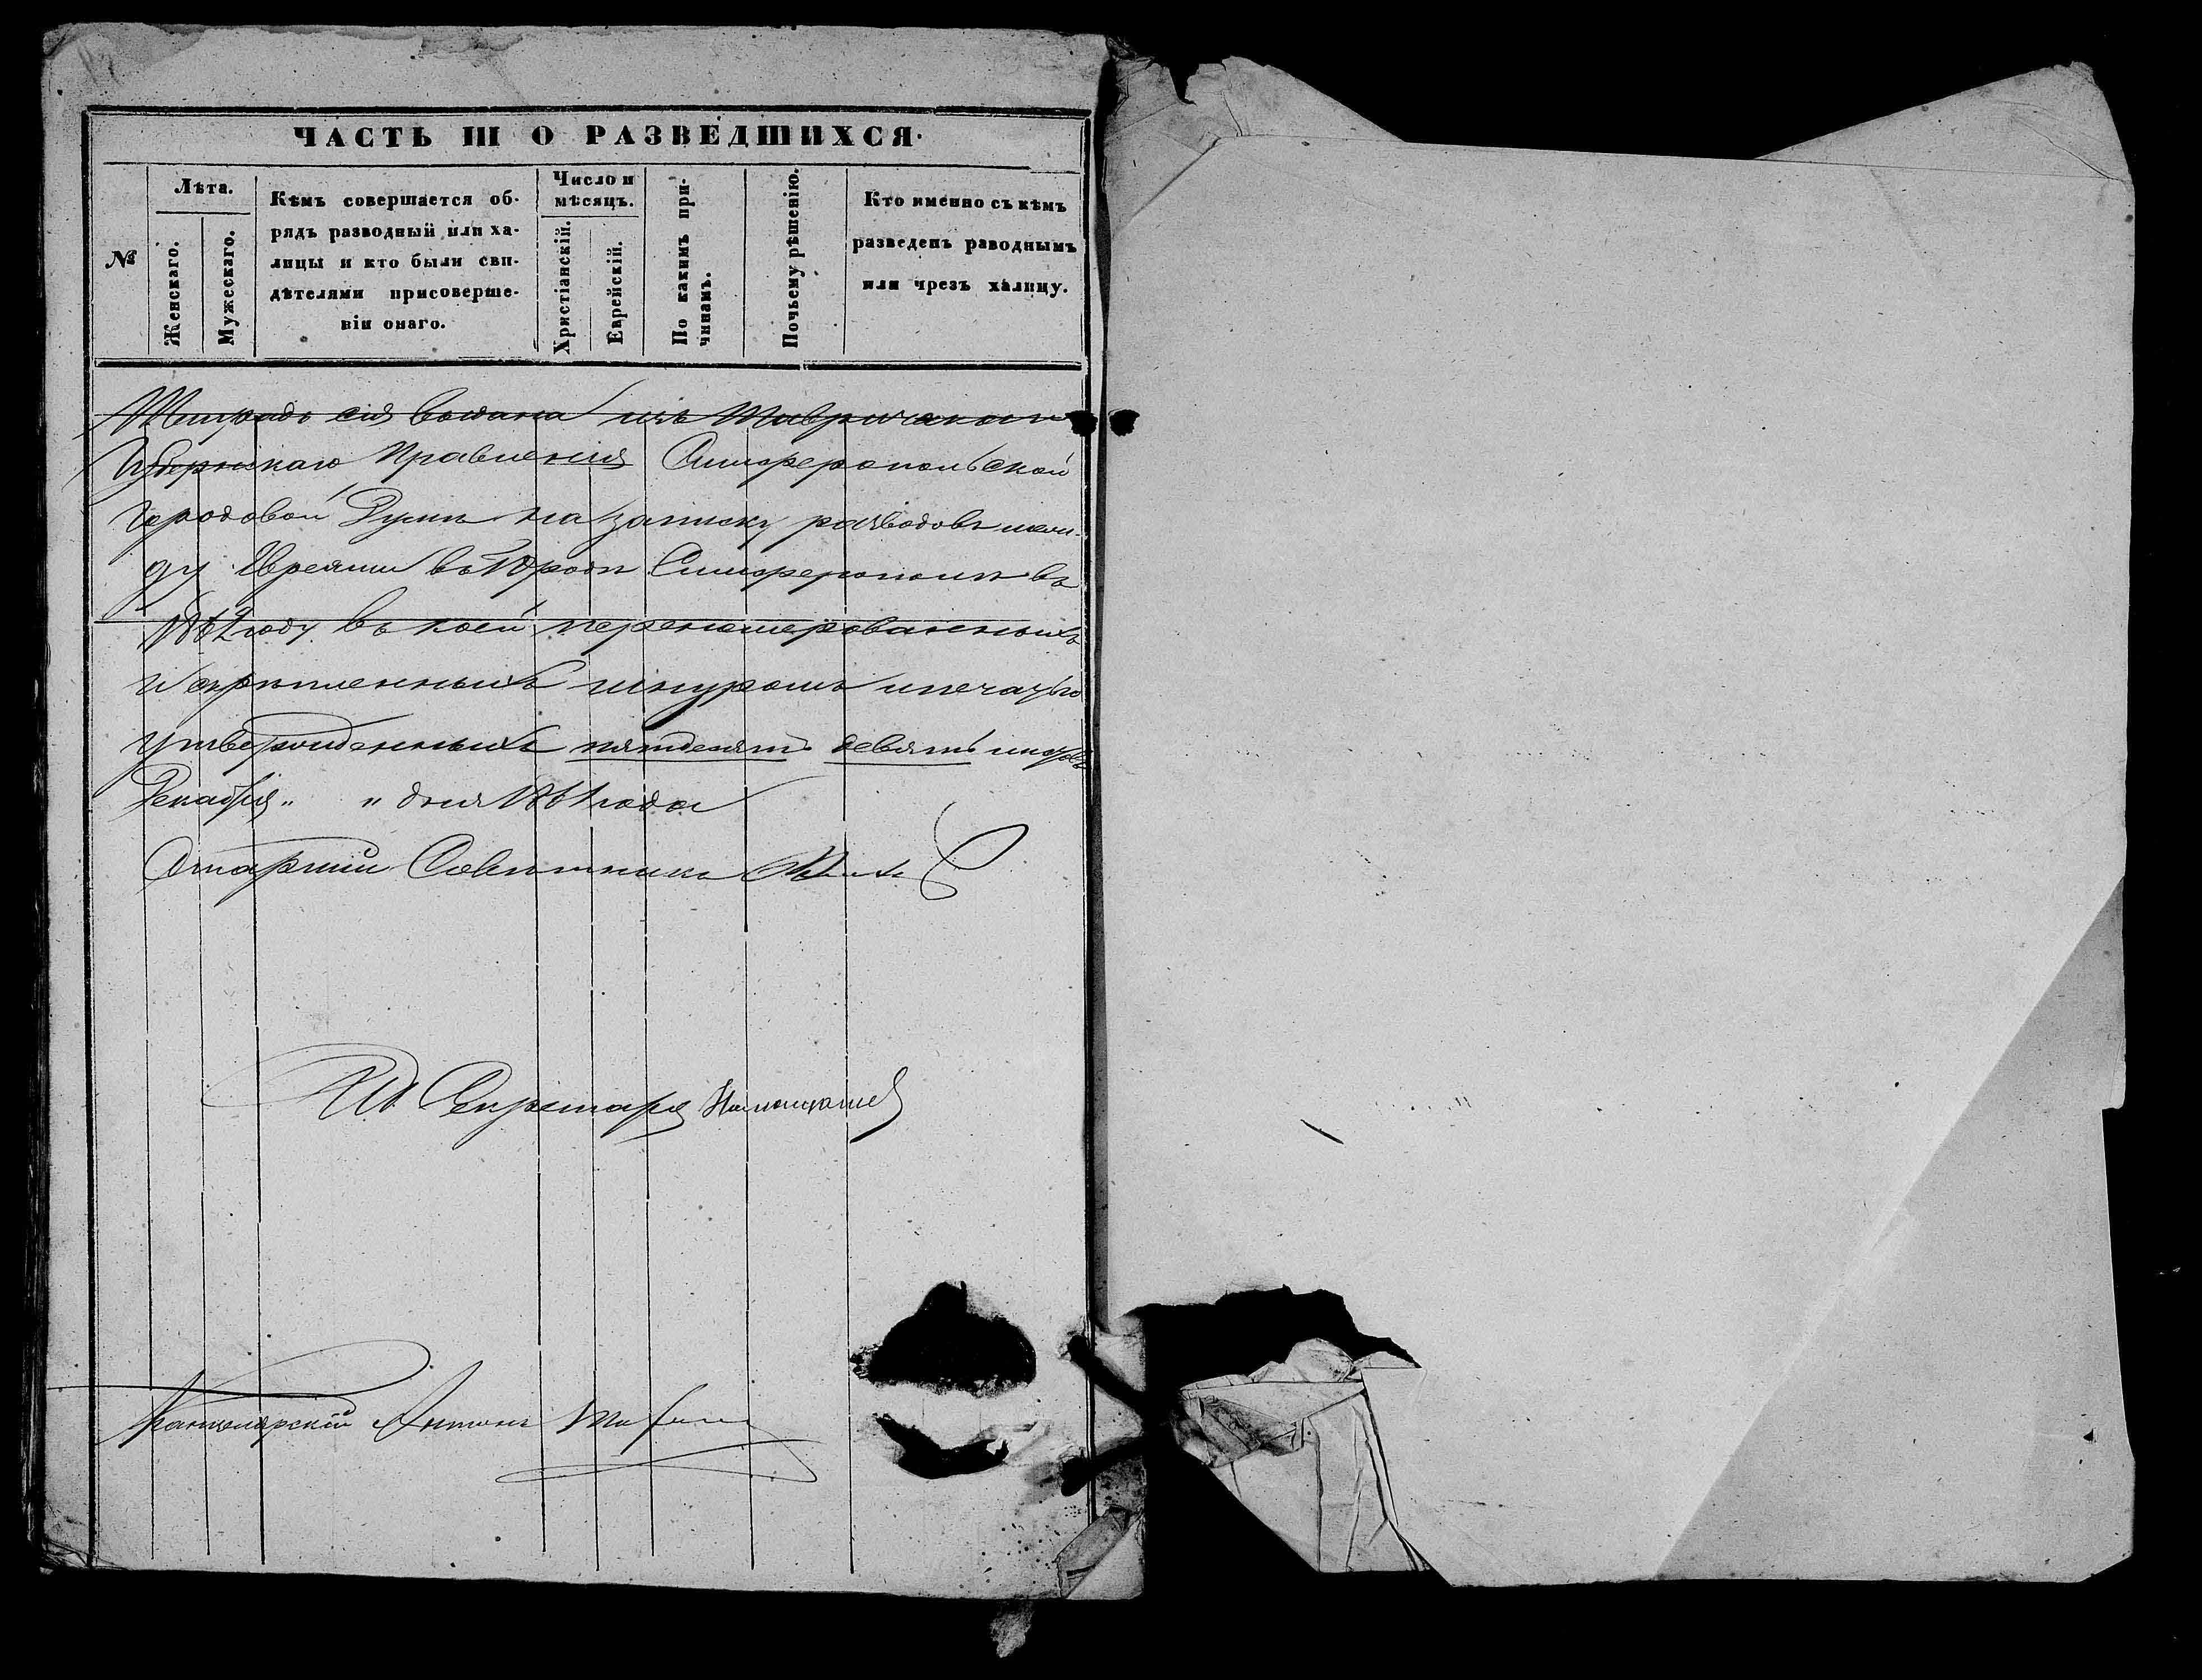 ЧАСТЬ III О РАЗВЕДШИХСЯ.
№
Лѣта.
Женскаго.
Мужескаго.
Кѣмъ совершается об-
рядъ разводный или ха-
лицы и кто были сви-
дѣтелями присоверше-
віи онаго.
Число и
мѣсяцъ.
Христіанскій.
Еврейскій.
По какимъ при-
чинамъ.
Почьему рѣшенію.
Кто именно съ кѣмъ
разведенъ раводнымъ
или чрезъ халицу.
Тетрадь сія выдана изъ Таврическаго
Губернскаго Правленія Симферопольской
Городовой Думѣ на записку разводовъ меж-
ду Евреями въ Городѣ Симферополѣ въ
1862 году въ коей перенумерованныхъ
и скрѣпленныхъ шнуромъ и печатью
утвержденныхъ пятдесятъ девять листовъ
Декабря „ „ дня 1861 года
Старшій Совѣтникъ
И.д. Секретаря
Канцелярскій Антонъ